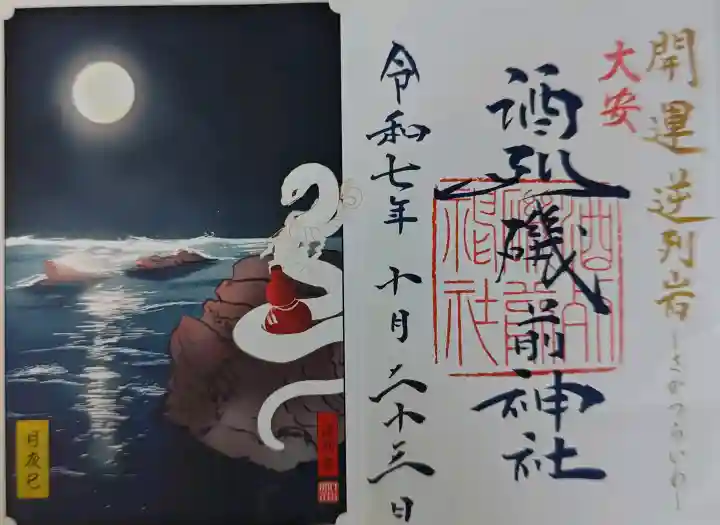 開運逆列岩
~さかつらいわ~
大安
酒列磯前神社
令和七年十月二十三日
月夜巳